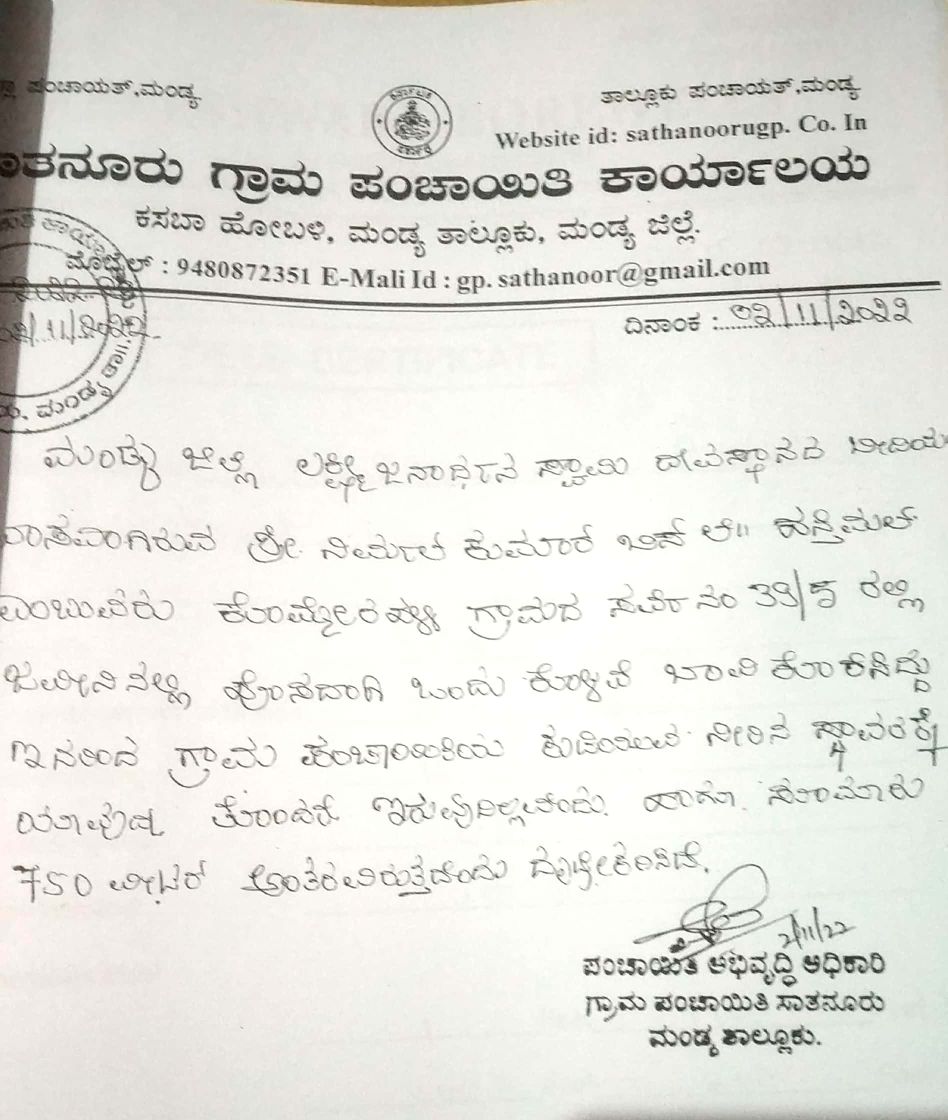 ಪಂಚಾಯತ್,ಮಂಡ್ಯ
ತಾಲ್ಲೂಕು ಪಂಚಾಯತ್,ಮಂಡ್ಯ
Website id: sathanoorugp. Co. In
ಾತನೂರು ಗ್ರಾಮ ಪಂಚಾಯಿತಿ ಕಾರ್ಯಾಲಯ
ಕಸಬಾ ಹೋಬಳಿ, ಮಂಡ್ಯ ತಾಲ್ಲೂಕು, ಮಂಡ್ಯ ಜಿಲ್ಲೆ.
ಮೊಬೈಲ್ : 9480872351 E-Mali Id : gp. sathanoor@gmail.com
/11/೨೦೨೨
ದಿನಾಂಕ : ೦೨/11/೨೦೨೨
ಮಂಡ್ಯ ಜಿಲ್ಲೆ ಲಕ್ಷ್ಮೀ ಜನಾರ್ಧನ ಸ್ವಾಮಿ ದೇವಸ್ಥಾನದ ಬೀದಿಯ
ವಾಸವಾಗಿರುವ ಶ್ರೀ ನಿರ್ಮಲ್ ಕುಮಾರ್ ಬಿನ್ ಲೇ॥ ಹಸ್ತಿಮಲ್
ಎಂಬುವರು ಗ್ರಾಮದ ಸರ್ವೆ ನಂ 39/5 ರಲ್ಲಿ
ಜಮೀನಿನಲ್ಲಿ ಹೊಸದಾಗಿ ಒಂದು ಕೊಳವೆ ಬಾವಿ ಕೊರೆಸಿದ್ದು
ಇದರಿಂದ ಗ್ರಾಮ ಪಂಚಾಯಿತಿಯ ಕುಡಿಯುವ ನೀರಿನ ಸ್ಥಾವರಕ್ಕೆ
ಯಾವುದೇ ತೊಂದರೆ ಇರುವುದಿಲ್ಲವೆಂದು ಹಾಗೂ ಸುಮಾರು
750 ಮೀಟರ್ ಅಂತರವಿರುತ್ತದೆಂದು ದೃಢೀಕರಿಸಿದೆ.
2/11/22
ಪಂಚಾಯಿತಿ ಅಭಿವೃದ್ಧಿ ಅಧಿಕಾರಿ
ಗ್ರಾಮ ಪಂಚಾಯಿತಿ ಸಾತನೂರು
ಮಂಡ್ಯ ತಾಲ್ಲೂಕು.